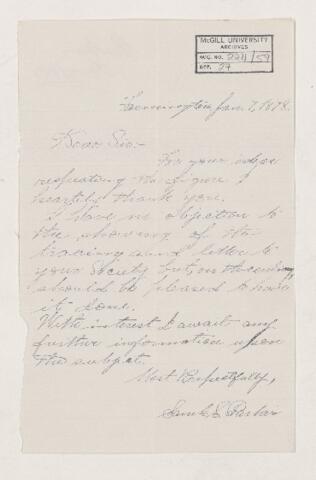 McGILL UNIVERSITY
ARCHIVES
ACC. NO. 2211/59
REF. 29
Jan. 7, 1878.
Dear Sir:-
For your
respecting the figure I
heartily thank you.
I have no objection to
the showing of the
tracing and letter to
your Society but, on the contrary
should be pleased to have
it done.
With interest I await any
further information upon
the subject.
Most Respectfully,